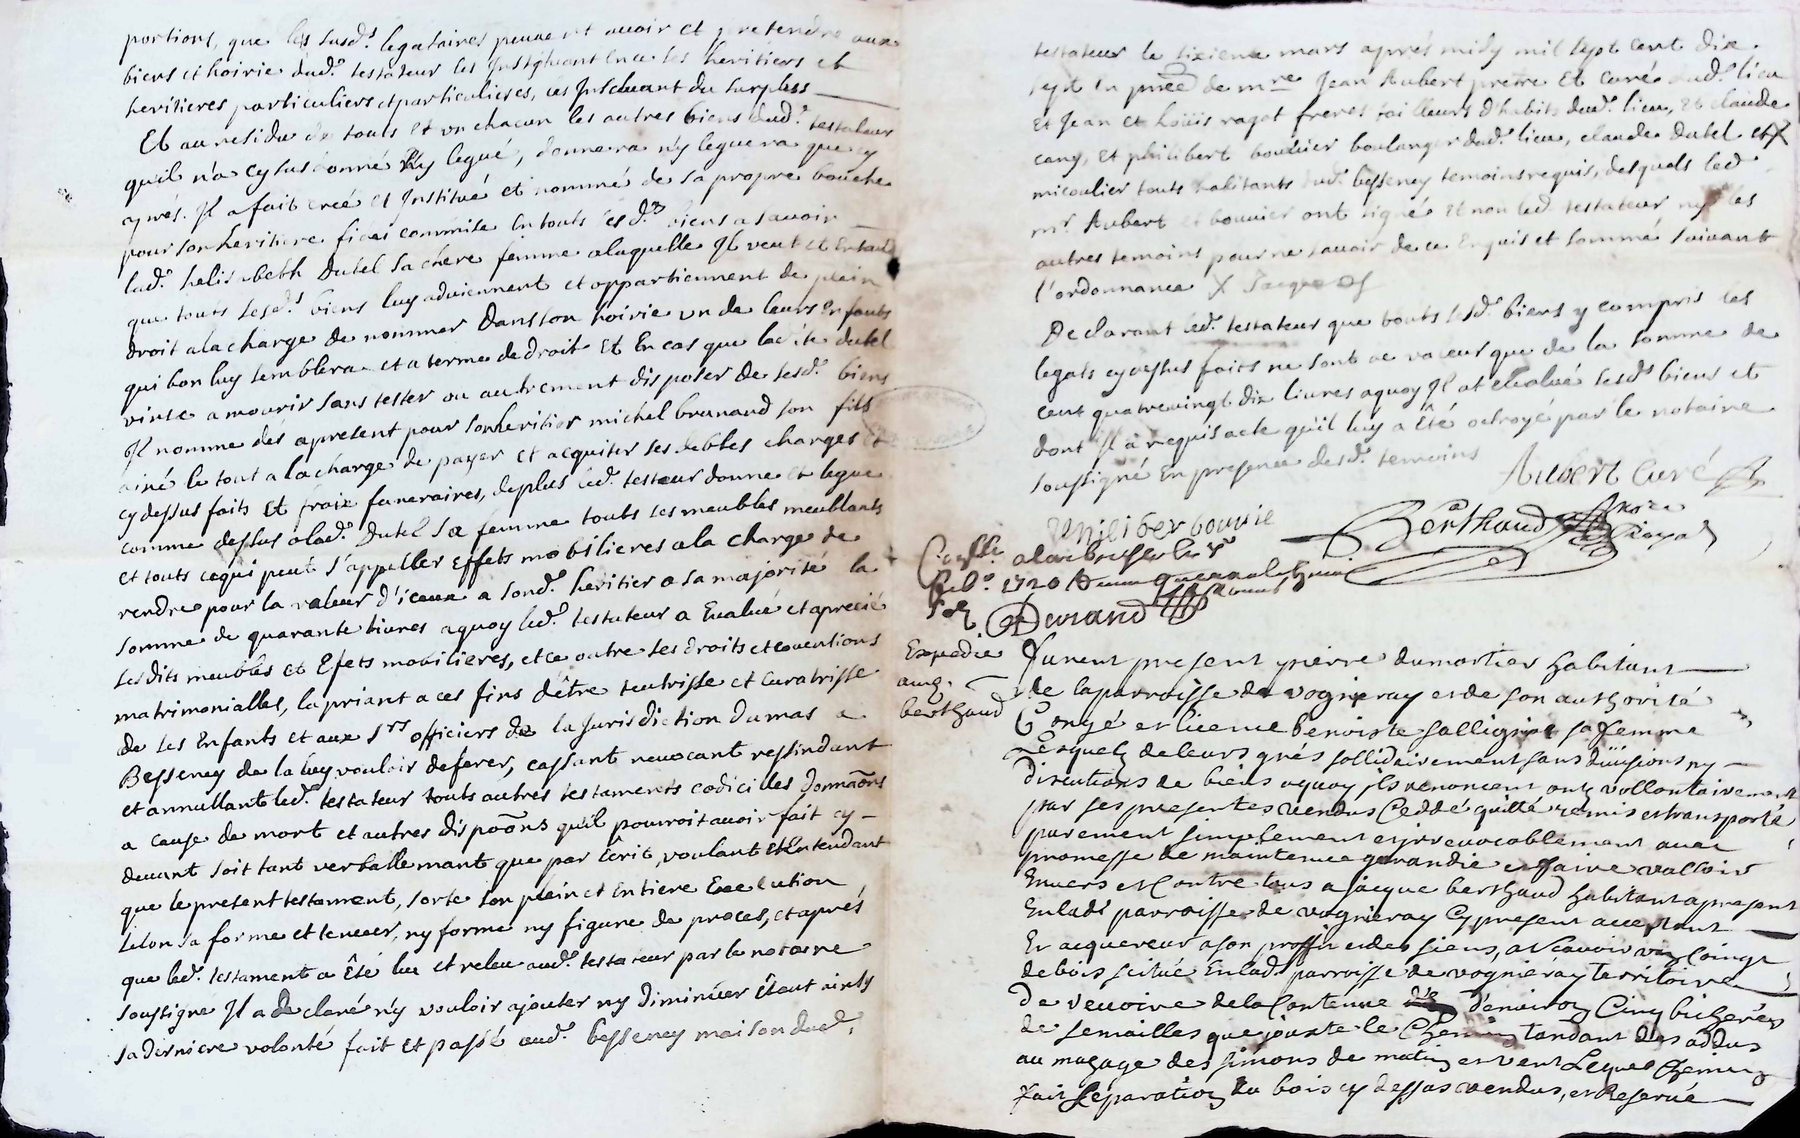 portions, que les susd.s legataires peuvent avoir et pretendre aux
biens et hoirie dud.t testateur les Instituant en ce ses heritiers et
heritieres particuliers et particulieres, les Jnscluant du surpluss
Et au residu de touts et vn chacun les autres biens dud.t testateur
quil n'a cy sus donné Ny legué, donnera ny leguera que cy
aprés. Il a fait creé et Jnstitué et nommé de sa propre bouche
pour son heritiere fidei commise En touts ses d.ts biens a savoir
lad.te helisabeth Dutel sa chere femme a laquelle Jl veut et Entand
que touts sesd.s biens luy adviennent et appartiennent de plein
droit a la charge de nommer Dans son hoirie vn de leurs Enfants
qui bon luy semblera et a terme de droit Et En cas que ladite dutel
vinse a mourir sans tester ou autrement disposer de sesd.ts biens
Jl nomme dés apresent pour son heritier michel brunaud son fils
ainé le tout a la charge de payer et acquiter ses debtes charges et
cy dessus faits Et fraix funeraires, deplus led.t testeur donne et legue
comme dessus a lad.te Dutel Sa femme touts ses meubles meublants
et touts cequi peut s'appeller Effets mobilieres a la charge de
rendre pour la valeur d'iceux a sond.t heritier a sa majorité la
somme de quarante livres aquoy led.t testateur a Evalué et aprecié
lesdits meubles et Efets mobilieres, et ce outre ses droits et coventions
matrimonialles, la priant a ces fins d'être teutrisse et Curatrisse
de ses Enfants et aux s.rs officiers de la Jurisdiction dumas a
Besseney de la luy vouloir deferer, cassant revocant ressindant
et annullant led.t testateur touts autres testaments codicilles Donnaõns
a cause de mort et autres dispoõns qu'il pourroit avoir fait cy
devant soit tant verballemant que par Ecrit, voulant et Entendant
que le present testament, sorte son plein et Entiere Execution
selon sa forme et teneur, ny forme ny figure de proces, et aprés
que led.t testament a Êté lu et releu aud.t testateur par le notaire
soussigne Jl a declaré n'y vouloir ajouter ny diminüer étant ainsy
sa derniere volonté fait et passé aud.t besseney maison dud.t
testateur le sizieme mars aprés midy mil sept cent dix
sept En pñce de m.re Jean Aubert pretre Et Curé dud.t lieu
Et Jean et Loüis ragot freres tailleurs d'habits dud.t lieu, Et claude
cany, et philibert bouvier boulanger dud.t lieu, claude dutel et X
micoulier touts habitants dud.t besseney temoins requis, desquels led.
m.r Aubert et bouvier ont signé Et non led. testateur ny les
autres temoins pour ne savoir de ce Enquis et sommé suivant
l'ordonnance X Jacque
Declarant led.t testateur que touts sesd.ts biens y compris les
legats cy dessus faits ne sont de valeur que de la somme de
cent quatrevingt dix livres aquoy Jl at evalué sesd.ts biens et
dont Jl à requis acte qu'il luy a Êté octroyé par le notaire
soussigné En presence desd.ts temoins
Aubert Curé
philiber bouvie
Berthaud No.re Royal
Con.lle alarbresle le
feb.r 1720
Durand
Expedié
aug.
berthaud
Furent present pierre dumortier habitant
de la parroisse de vogneray et de son authorité
Congé et licence benoiste salligniat sa femme
Lesquels de leurs grés sollidairement sans diuisions ny
discutions de biens aquoy jls renoncent ont vollontairement
par ses presentes vendus Ceddé quitté remis et transporté
purement simplement et jrrevocablement avec
promesse de maintenue garandie et faire valloir
Envers et Contre tous a jacque berthaud habitant apresent
En lad.te parroisse de vogneray Cy present acceptant
Et acquereur a son proffit et des siens, a scavoir vng Coing
de bois scitué En lad.te parroisse de vogneray Territoire
de venoire de la Contenue d'environ Cinq bicherées
de semailles que jouxte le Chemin tandant des addus
au magage des simons de matin et vent Lequel chemin
fait Separation du bois cy dessus vendus, et Reservé